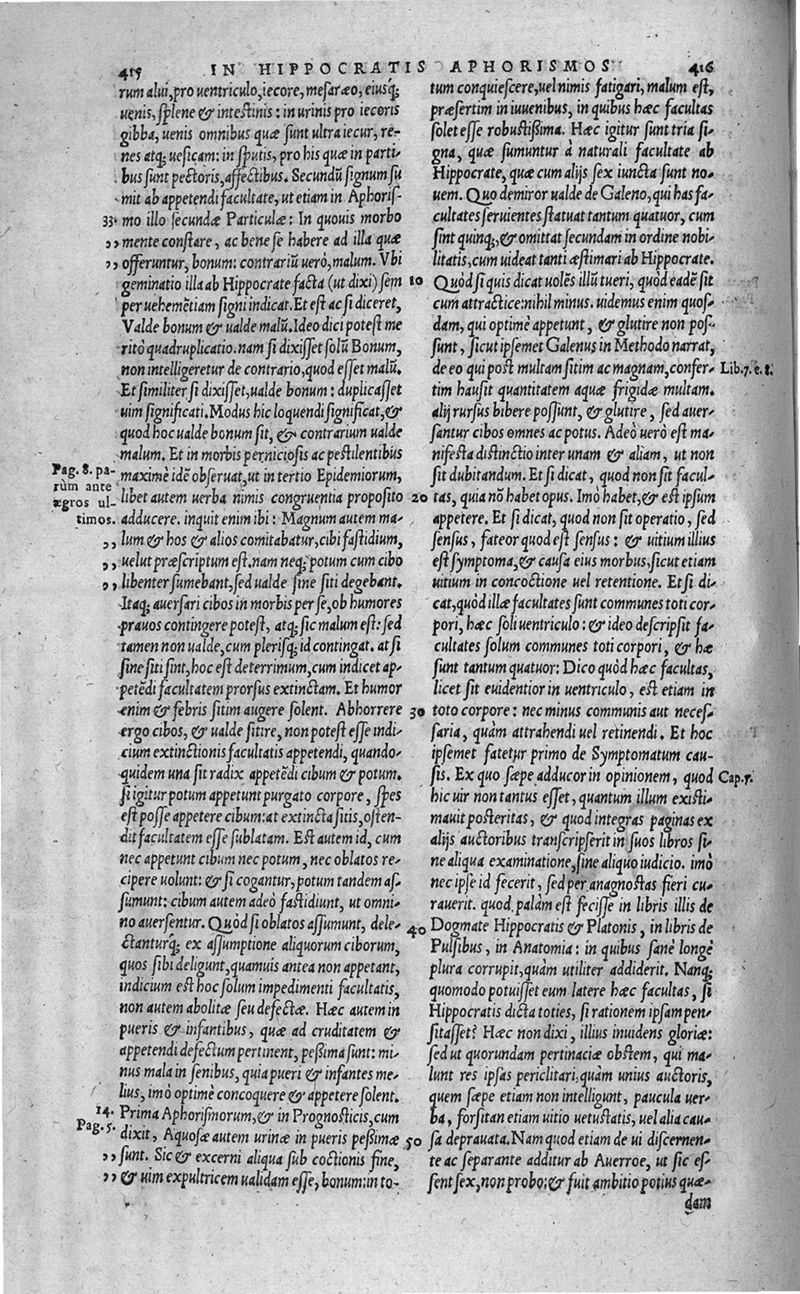 415 IN HIPPOCRATIS APHORISMOS 416
rum alui, pro uentriculo, iecore, mesaræo, eiusq́;
uenis, splene & intestinis: in urinis pro iecoris
gibba, uenis omnibus quæ sunt ultra iecur, re-
nes atq; uesicam: in sputis, pro his quæ in parti-
bus sunt pectoris, affectibus. Secundũ signum su
mit ab appetendi facultate, ut etiam in Aphoris-
33. mo illo secundæ Particulæ: In quouis morbo
,, mente constare, ac bene se habere ad illa quæ
,, offeruntur, bonum: contrariũ uerò, malum. Vbi
geminatio illa ab Hippocrate facta (ut dixi) sem
per uehemẽtiam signi indicat. Et est ac si diceret,
Valde bonum & ualde malũ. Ideo dici potest me
ritò quadruplicatio. nam si dixisset solũ Bonum,
non intelligeretur de contrario, quod esset malũ.
Et similiter si dixisset, ualde bonum: duplicasset
uim significati. Modus hic loquendi significat, &
quod hoc ualde bonum sit, & contrarium ualde
malum. Et in morbis perniciosis ac pestilentibus
Pag. 8. pa-
rùm ante
ægros ul-
timos.
maximè idẽ obseruat, ut in tertio Epidemiorum,
libet autem uerba nimis congruentia proposito
adducere. inquit enim ibi: Magnum autem ma-
,, lum & hos & alios comitabatur, cibi fastidium,
,, uelut præscriptum est. nam neq; potum cum cibo
,, libenter sumebant, sed ualde sine siti degebant.
Itaq; auersari cibos in morbis per se, ob humores
prauos contingere potest, atq; sic malum est: sed
tamen non ualde, cum plerisq; id contingat. at si
sine siti sint, hoc est deterrimum, cum indicet ap-
petẽdi facultatem prorsus extinctam. Et humor
enim & febris sitim augere solent. Abhorrere
ergo cibos, & ualde sitire, non potest esse indi-
cium extinctionis facultatis appetendi, quando-
quidem una sit radix appetẽdi cibum & potum.
si igitur potum appetunt purgato corpore, spes
est posse appetere cibum: at extincta sitis, osten-
dit facultatem esse sublatam. Est autem id, cum
nec appetunt cibum nec potum, nec oblatos re-
cipere uolunt: & si cogantur, potum tandem as-
sumunt: cibum autem adeò fastidiunt, ut omni-
no auersentur. Quòd si oblatos assumunt, dele-
ctanturq́; ex assumptione aliquorum ciborum,
quos sibi deligunt, quamuis antea non appetant,
indicium est hoc solum impedimenti facultatis,
non autem abolitæ seu defectæ. Hæc autem in
pueris & infantibus, quæ ad cruditatem &
appetendi defectum pertinent, peßima sunt: mi-
nus mala in senibus, quia pueri & infantes me-
lius, imò optimè concoquere & appetere solent.
14.
Pag. 5.
Prima Aphorismorum, & in Prognosticis, cum
dixit, Aquosæ autem urinæ in pueris peßimæ
,, sunt. Sic & excerni aliqua sub coctionis fine,
,, & uim expultricem ualidam esse, bonum: in to-
tum conquiescere, uel nimis fatigari, malum est,
præsertim in iuuenibus, in quibus hæc facultas
solet esse robustißima. Hæc igitur sunt tria si-
gna, quæ sumuntur à naturali facultate ab
Hippocrate, quæ cum alijs sex iuncta sunt no-
uem. Quo demiror ualde de Galeno, qui has fa-
cultates seruientes statuat tantum quatuor, cum
sint quinq;, & omittat secundam in ordine nobi-
litatis, cum uideat tanti æstimari ab Hippocrate.
10 Quòd si quis dicat uolẽs illũ tueri, quòd eadẽ sit
cum attractice: nihil minus. uidemus enim quos-
dam, qui optimè appetunt, & glutire non pos-
sunt, sicut ipsemet Galenus in Methodo narrat,
de eo qui post multam sitim ac magnam, confer- Lib. 7. c. 8.
tim hausit quantitatem aquæ frigidæ multam.
alij rursus bibere possunt, & glutire, sed auer-
santur cibos omnes ac potus. Adeò uerò est ma-
nifesta distinctio inter unam & aliam, ut non
sit dubitandum. Et si dicat, quod non sit facul-
20 tas, quia nõ habet opus. Imò habet, & est ipsum
appetere. Et si dicat, quod non sit operatio, sed
sensus, fateor quod est sensus: & uitium illius
est symptoma, & causa eius morbus, sicut etiam
uitium in concoctione uel retentione. Et si di-
cat, quòd illæ facultates sunt communes toti cor-
pori, hæc soli uentriculo: & ideo descripsit fa-
cultates solum communes toti corpori, & hæ
sunt tantum quatuor: Dico quòd hæc facultas,
licet sit euidentior in uentriculo, est etiam in
30 toto corpore: nec minus communis aut neces-
saria, quàm attrahendi uel retinendi. Et hoc
ipsemet fatetur primo de Symptomatum cau-
sis. Ex quo sæpe adducor in opinionem, quod Cap. 7.
hic uir non tantus esset, quantum illum existi-
mauit posteritas, & quod integras paginas ex
alijs auctoribus transcripserit in suos libros si-
ne aliqua examinatione, sine aliquo iudicio. imò
nec ipse id fecerit, sed per anagnostas fieri cu-
rauerit. quod palàm est fecisse in libris illis de
40 Dogmate Hippocratis & Platonis, in libris de
Pulsibus, in Anatomia: in quibus sanè longè
plura corrupit, quàm utiliter addiderit. Nanq;
quomodo potuisset eum latere hæc facultas, si
Hippocratis dicta toties, si rationem ipsam pen-
sitasset? Hæc non dixi, illius inuidens gloriæ:
sed ut quorundam pertinaciæ obstem, qui ma-
lunt res ipsas periclitari, quàm unius auctoris,
quem sæpe etiam non intelligunt, paucula uer-
ba, forsitan etiam uitio uetustatis, uel alia cau-
50 sa deprauata. Nam quod etiam de ui discernen-
te ac separante additur ab Averroe, ut sic es-
sent sex, non probo: & fuit ambitio potius quæ-
dam